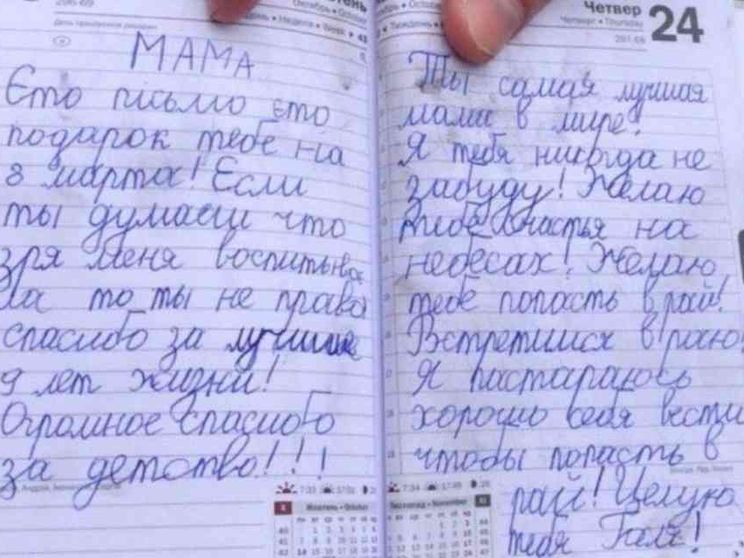 МАМА
Єто письмо єто
подарок тебе на
8 марта! Если
ты думаеш что
зря меня воспитыва
ла то ты не права
спасибо за лучшие
9 лет жизни!
Огромное спасибо
за детство!!!
Четвер
Четверг • Thursday
24
Ты самая лучшая
мама в мире!
Я тебя никогда не
забуду! Желаю
тебе счастья на
небесах! Желаю
тебе попасть в рай!
Встретимся в раю!
Я пастараюсь
хорошо себя вести
чтобы попасть в
рай! Целую
тебя Галя!
Жовтень • October
Листопад • November